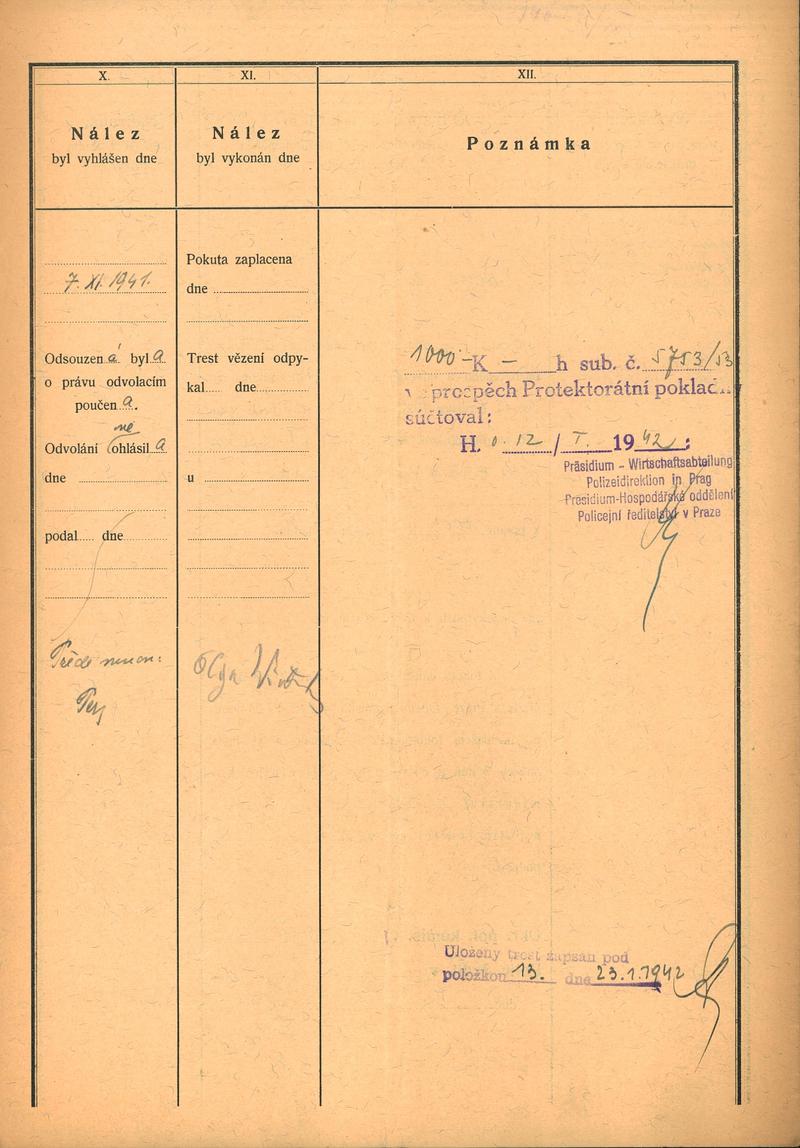 X.
Nález
byl vyhlášen dne
7. XI. 1941.
Odsouzená byla
o právu odvolacím
poučena.
Odvolání neohlásila
dne
podal..... dne
XI.
Nález
byl vykonán dne
Pokuta zaplacena
dne
Trest vězení odpy-
kal..... dne
u
Olga
XII.
Poznámka
1000 K — h sub. č. 5753/53
v prospěch Protektorátní poklad..
súčtoval:
H. 12/I. 1942:
Präsidium - Wirtschaftsabteilung
Polizeidirektion in Prag
Presidium-Hospodářské oddělení
Policejní ředitelství v Praze
Uložený trest zapsán pod
položkou 13. dne 23.1.1942